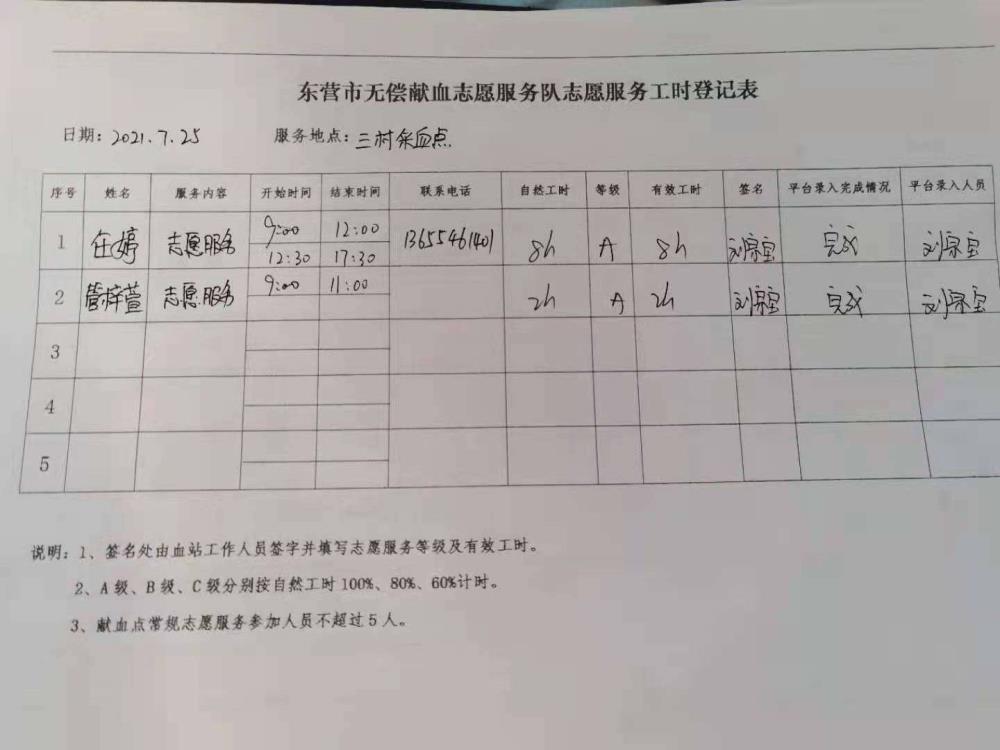 东营市无偿献血志愿服务队志愿服务工时登记表
日期：2021.7.25 服务地点：三村采血点
序号 姓名 服务内容 开始时间 结束时间 联系电话 自然工时 等级 有效工时 签名 平台录入完成情况 平台录入人员
1 任婷 志愿服务 9:00 12:00 13655461401 8h A 8h 刘宗宝 完成 刘宗宝
12:30 17:30
2 管梓萱 志愿服务 9:00 11:00 2h A 2h 刘宗宝 完成 刘宗宝
3
4
5
说明：1、签名处由血站工作人员签字并填写志愿服务等级及有效工时。
2、A级、B级、C级分别按自然工时100%、80%、60%计时。
3、献血点常规志愿服务参加人员不超过5人。